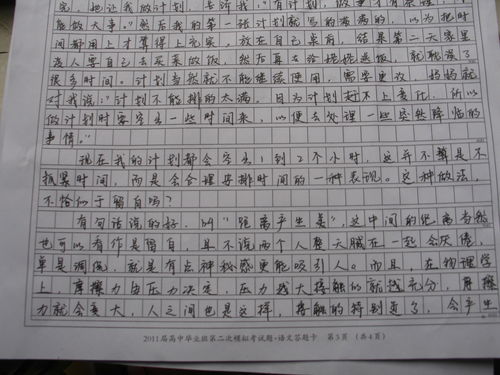 宽，把让我做计划，告诉我，"有计划，做事才有条理，才
能做大事。"然后我的第一张计划就写的满满的，以为把时
间都用上才算得上充实，放在自己桌前，结果第二天家里
客人要自己去买菜做饭，然后再去给姥姥送饭，就耽误了
很多时间。计划当然就不能继续使用，需要更改，妈妈就
对我说："计划不能排的太满，因为计划赶不上变化，所以
做计划时要空出一些时间来，以便去处理一些突然降临的
事情。"
现在我的计划都会空出1到2个小时，这并不算是不
抓紧时间，而是会合理安排时间的一种表现。这种做法，
不恰似于留白吗？
有句话说的好，叫"距离产生美"，这中间的距离当然
也可以看作是留白，且不说两个人整天腻在一起会厌倦，
单是调侃，就是有点神秘感更能吸引人。而且，在物理学
上，摩擦力由压力决定，压力越大接触的就越充分，摩擦
力就会变大，人之间也是这样，接触的特别多了，会产生
2011届高中毕业班第二次模拟考试题·语文答题卡 第3页（共4页）